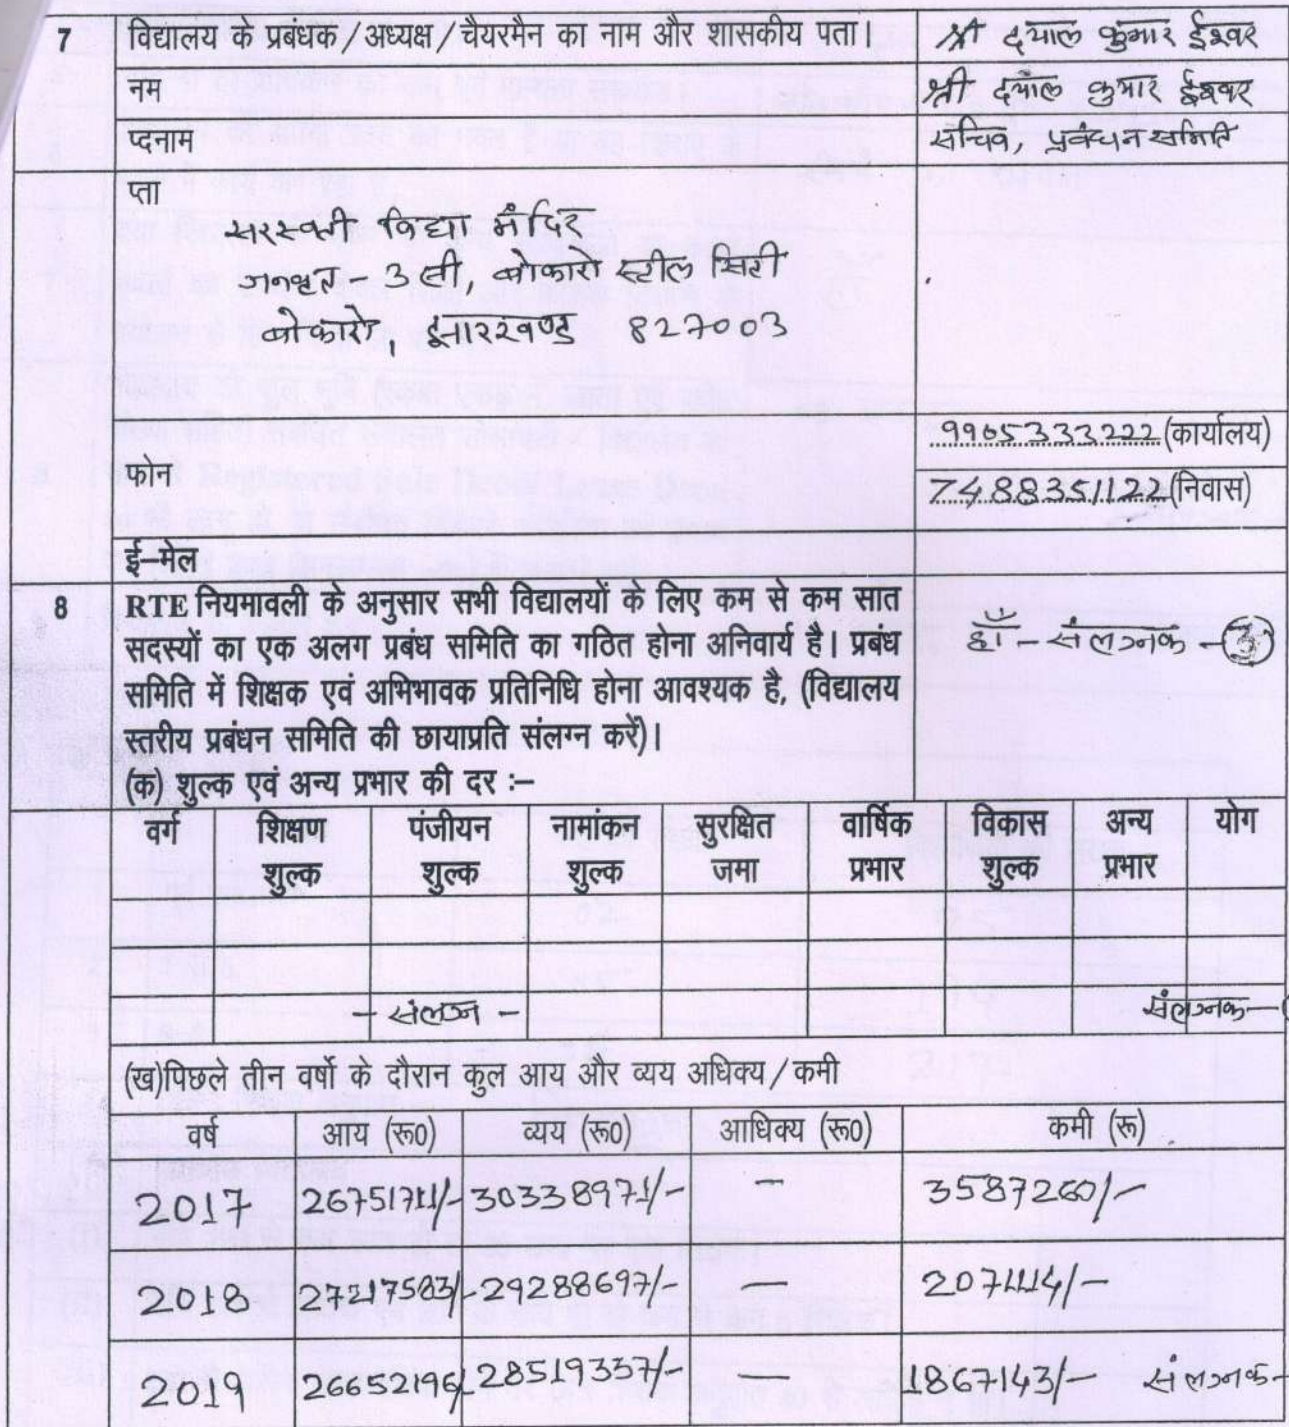 7 विद्यालय के प्रबंधक/अध्यक्ष/चैयरमैन का नाम और शासकीय पता। श्री दयाल कुमार ईश्वर
नम श्री दयाल कुमार ईश्वर
प्दनाम सचिव, प्रबंधन समिति
प्ता
सरस्वती विद्या मंदिर
जनवृत - 3 सी, बोकारो स्टील सिटी
बोकारो, झारखण्ड 827003
9905333222 (कार्यालय)
फोन
7488351122 (निवास)
ई-मेल
8 RTE नियमावली के अनुसार सभी विद्यालयों के लिए कम से कम सात
सदस्यों का एक अलग प्रबंध समिति का गठित होना अनिवार्य है। प्रबंध हाँ - संलग्नक - 3
समिति में शिक्षक एवं अभिभावक प्रतिनिधि होना आवश्यक है, (विद्यालय
स्तरीय प्रबंधन समिति की छायाप्रति संलग्न करें)।
(क) शुल्क एवं अन्य प्रभार की दर :–
वर्ग शिक्षण पंजीयन नामांकन सुरक्षित वार्षिक विकास अन्य योग
शुल्क शुल्क शुल्क जमा प्रभार शुल्क प्रभार
- संलग्न - संलग्नक -
(ख)पिछले तीन वर्षो के दौरान कुल आय और व्यय अधिक्य/कमी
वर्ष आय (रू0) व्यय (रू0) आधिक्य (रू0) कमी (रू)
2017 26751711/- 30338971/- - 3587260/-
2018 27217583/- 29288697/- - 2071114/-
2019 26652196/- 28519337/- - 1867143/- संलग्नक -